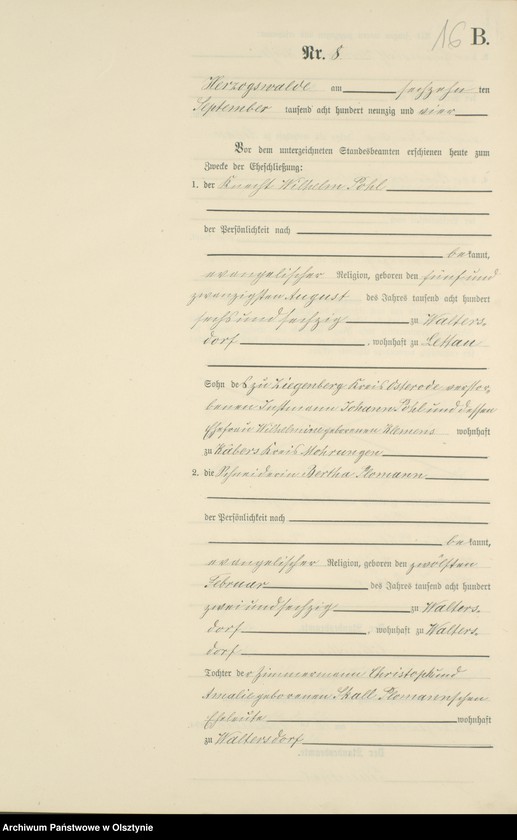 16 B.
Nr. 8
Herzogswalde am sechzehn ten
September tausend acht hundert neunzig und vier
Vor dem unterzeichneten Standesbeamten erschienen heute zum
Zwecke der Eheschließung:
1. der Knecht Wilhelm Pohl
der Persönlichkeit nach
bekannt,
evangelischer Religion, geboren den fünfund
zwanzigsten August des Jahres tausend acht hundert
sechsundsechzig zu Walters
dorf, wohnhaft zu
Sohn des zu Ziegenberg Kreis Osterode verstor
benen Instmann Johann Pohl und dessen
Ehefrau Wilhelmine geborenen Klemens wohnhaft
zu Kreis Mohrungen
2. die Schneiderin Bertha Plomann
der Persönlichkeit nach
bekannt,
evangelischer Religion, geboren den zwölften
Februar des Jahres tausend acht hundert
zweiundsechzig zu Walters
dorf, wohnhaft zu Walters
dorf
Tochter der Zimmermann Christoph und
Amalie geborenen Skall Plomannschen
Eheleute wohnhaft
zu Waltersdorf
Archiwum Państwowe w Olsztynie